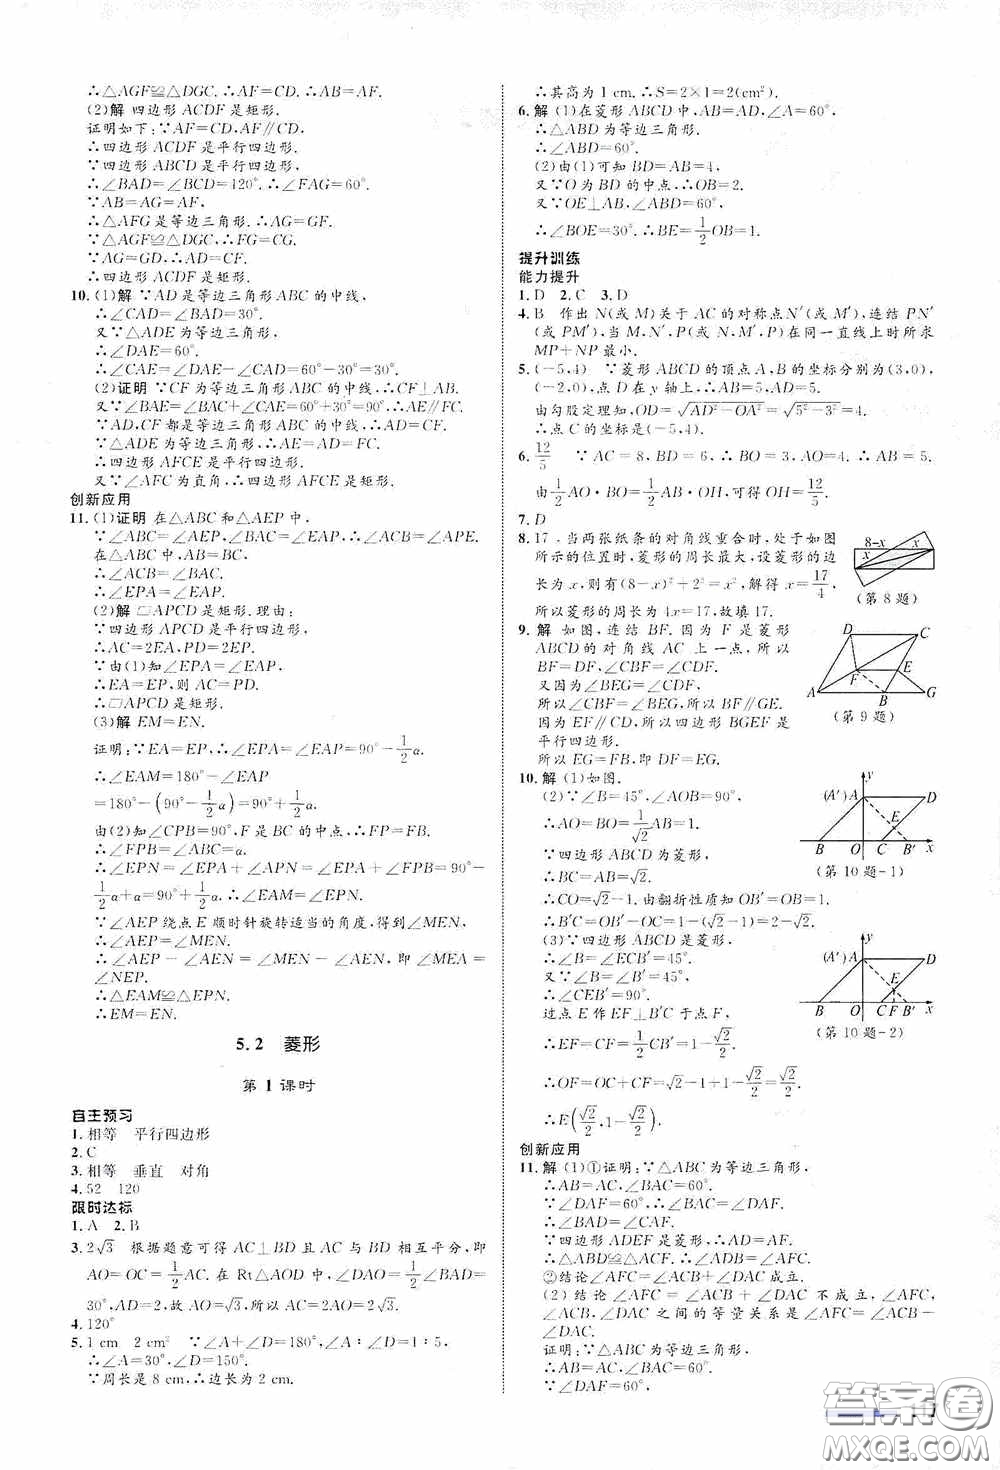 ∴△AGF≌△DGC.∴AF=CD.∴AB=AF.
(2)解 四边形ACDF是矩形.
证明如下:∵AF=CD,AF∥CD,
∴四边形ACDF是平行四边形.
∵四边形ABCD是平行四边形,
∴∠BAD=∠BCD=120°.∴∠FAG=60°.
∵AB=AG=AF,
∴△AFG是等边三角形.∴AG=GF.
∵△AGF≌△DGC,∴FG=CG.
∵AG=GD,∴AD=CF.
∴四边形ACDF是矩形.
10.(1)解 ∵AD是等边三角形ABC的中线,
∴∠CAD=∠BAD=30°.
又∵△ADE为等边三角形,
∴∠DAE=60°.
∴∠CAE=∠DAE-∠CAD=60°-30°=30°.
(2)证明 ∵CF为等边三角形ABC的中线,∴CF⊥AB.
又∵∠BAE=∠BAC+∠CAE=60°+30°=90°,∴AE∥FC.
∵AD,CF都是等边三角形ABC的中线,∴AD=CF.
又∵△ADE为等边三角形,∴AE=AD=FC.
∴四边形AFCE是平行四边形.
又∵∠AFC为直角,∴四边形AFCE是矩形.
创新应用
11.(1)证明 在△ABC和△AEP中,
∵∠ABC=∠AEP,∠BAC=∠EAP,
∴∠ACB=∠APE.
在△ABC中,∵AB=BC,
∴∠ACB=∠BAC.
∴∠EPA=∠EAP.
(2)解 □APCD是矩形.理由:
∵四边形APCD是平行四边形,
∴AC=2EA,PD=2EP.
∵由(1)知∠EPA=∠EAP,
∴EA=EP,则AC=PD.
∴□APCD是矩形.
(3)解 EM=EN.
证明:∵EA=EP,∴∠EPA=∠EAP=90°-1/2α.
∴∠EAM=180°-∠EAP
=180°-(90°-1/2α)=90°+1/2α.
由(2)知∠CPB=90°,F是BC的中点,∴FP=FB.
∴∠FPB=∠ABC=α.
∴∠EPN=∠EPA+∠APN=∠EPA+∠FPB=90°-
1/2α+α=90°+1/2α.∴∠EAM=∠EPN.
∵∠AEP绕点E顺时针旋转适当的角度,得到∠MEN,
∴∠AEP=∠MEN.
∴∠AEP-∠AEN=∠MEN-∠AEN,即∠MEA=
∠NEP.
∴△EAM≌△EPN.
∴EM=EN.
5.2 菱形
第1课时
自主预习
1.相等 平行四边形
2.C
3.相等 垂直 对角
4.52 120
限时达标
1.A 2.B
3.2√3 根据题意可得AC⊥BD且AC与BD相互平分,即
AO=OC=1/2AC.在Rt△AOD中,∠DAO=1/2∠BAD=
30°,AD=2,故AO=√3,所以AC=2AO=2√3.
4.120°
5.1 cm 2 cm² ∵∠A+∠D=180°,∠A∶∠D=1∶5,
∴∠A=30°,∠D=150°.
∵周长是8 cm,∴边长为2 cm.
∴其高为1 cm.∴S=2×1=2(cm²).
6.解 (1)在菱形ABCD中,AB=AD,∠A=60°,
∴△ABD为等边三角形.
∴∠ABD=60°.
(2)由(1)可知BD=AB=4,
又∵O为BD的中点,∴OB=2.
又∵OE⊥AB,∠ABD=60°,
∴∠BOE=30°.∴BE=1/2OB=1.
提升训练
能力提升
1.D 2.C 3.D
4.B 作出N(或M)关于AC的对称点N′(或M′),连结PN′
(或PM′),当M、N′、P(或N、M′、P)在同一直线上时所求
MP+NP最小.
5.(-5,4) ∵菱形ABCD的顶点A,B的坐标分别为(3,0),
(-2,0),点D在y轴上,∴AB=5,AD=5.
由勾股定理知,OD=√(AD²-OA²)=√(5²-3²)=4.
∴点C的坐标是(-5,4).
6.12/5 ∵AC=8,BD=6,∴BO=3,AO=4.∴AB=5.
由1/2AO·BO=1/2AB·OH,可得OH=12/5.
7.D
8.17 当两张纸条的对角线重合时,处于如图
所示的位置时,菱形的周长最大,设菱形的边
长为x,则有(8-x)²+2²=x²,解得x=17/4,
所以菱形的周长为4x=17,故填17.
8-x x
x
(第8题)
9.解 如图,连结BF.因为F是菱形
ABCD的对角线AC上一点,所以
BF=DF,∠CBF=∠CDF.
又因为∠BEG=∠CDF,
所以∠CBF=∠BEG,所以BF∥EG.
因为EF∥CD,所以四边形BGEF是
平行四边形.
所以EG=FB,即DF=EG.
D C
F E
A B G
(第9题)
10.解 (1)如图.
(2)∵∠B=45°,∠AOB=90°,
∴AO=BO=1/√2AB=1.
∵四边形ABCD为菱形,
∴BC=AB=√2.
∴CO=√2-1.由翻折性质知OB′=OB=1.
∴B′C=OB′-OC=1-(√2-1)=2-√2.
(3)∵四边形ABCD是菱形,
∴∠B=∠ECB′=45°.
又∵∠B=∠B′=45°,
∴∠CEB′=90°.
过点E作EF⊥B′C于点F,
∴EF=CF=1/2CB′=1-√2/2.
∴OF=OC+CF=√2-1+1-√2/2=√2/2.
∴E(√2/2,1-√2/2).
y
(A′)A D
E
B O C B′ x
(第10题-1)
y
(A′)A D
E
B O C F B′ x
(第10题-2)
创新应用
11.解 (1)①证明:∵△ABC为等边三角形,
∴AB=AC,∠BAC=60°.
∵∠DAF=60°,∴∠BAC=∠DAF.
∴∠BAD=∠CAF.
∵四边形ADEF是菱形,∴AD=AF.
∴△ABD≌△ACF.∴∠ADB=∠AFC.
②结论∠AFC=∠ACB+∠DAC成立.
(2)结论∠AFC=∠ACB+∠DAC不成立,∠AFC,
∠ACB,∠DAC之间的等量关系是∠AFC=∠ACB-
∠DAC.
证明:∵△ABC为等边三角形,
∴AB=AC,∠BAC=60°.
∵∠DAF=60°,
答案圈
MXQE.COM